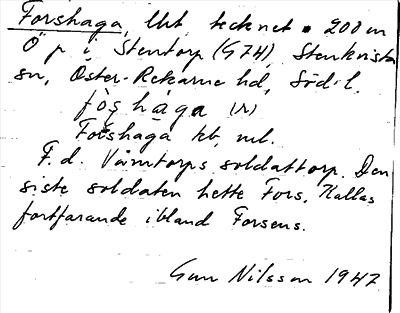 Forshaga, lht, tecknet • 200 m
Ö p i Stentorp (G7H), Stenkvista
sn, Öster-Rekarne hd, Söd-l.
fo̱ṣhaga (N)
Forshaga kb, ml.
F.d. Vämtorps soldattorp. Den
siste soldaten hette Fors. Kallas
fortfarande ibland Forsens.
Gun Nilsson 1947